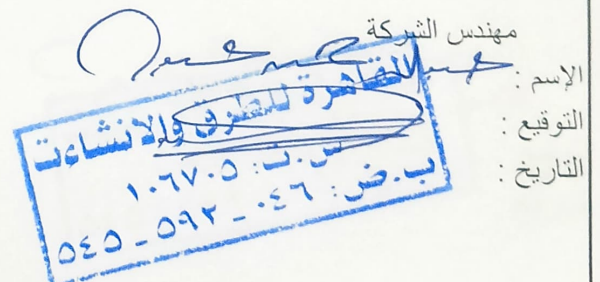 مهندس الشركة
الإسم :
التوقيع :
التاريخ :
القاهرة للطرق والانشاءات
س.ت: ١٠٦٧٠٥
ب.ض: ٠٤٦ - ٥٩٢ - ٥٤٥